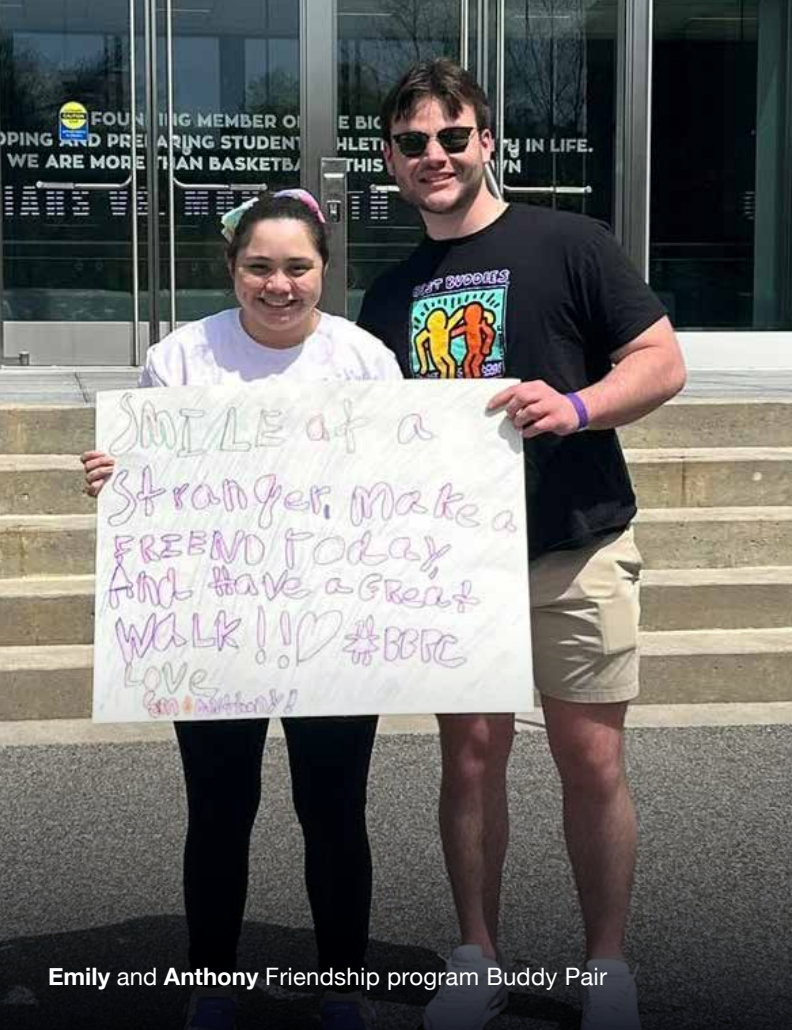 FOUNDING MEMBER OF THE BIG
PING AND PREPARING STUDENT IN LIFE.
WE ARE MORE THAN BASKETBA THIS
BEST BUDDIES
SMILE at a
Stranger, Make a
FRIEND Today,
And Have a Great
WALK!!♡ #BBFC
Love
Em & Anthony!
Emily and Anthony Friendship program Buddy Pair